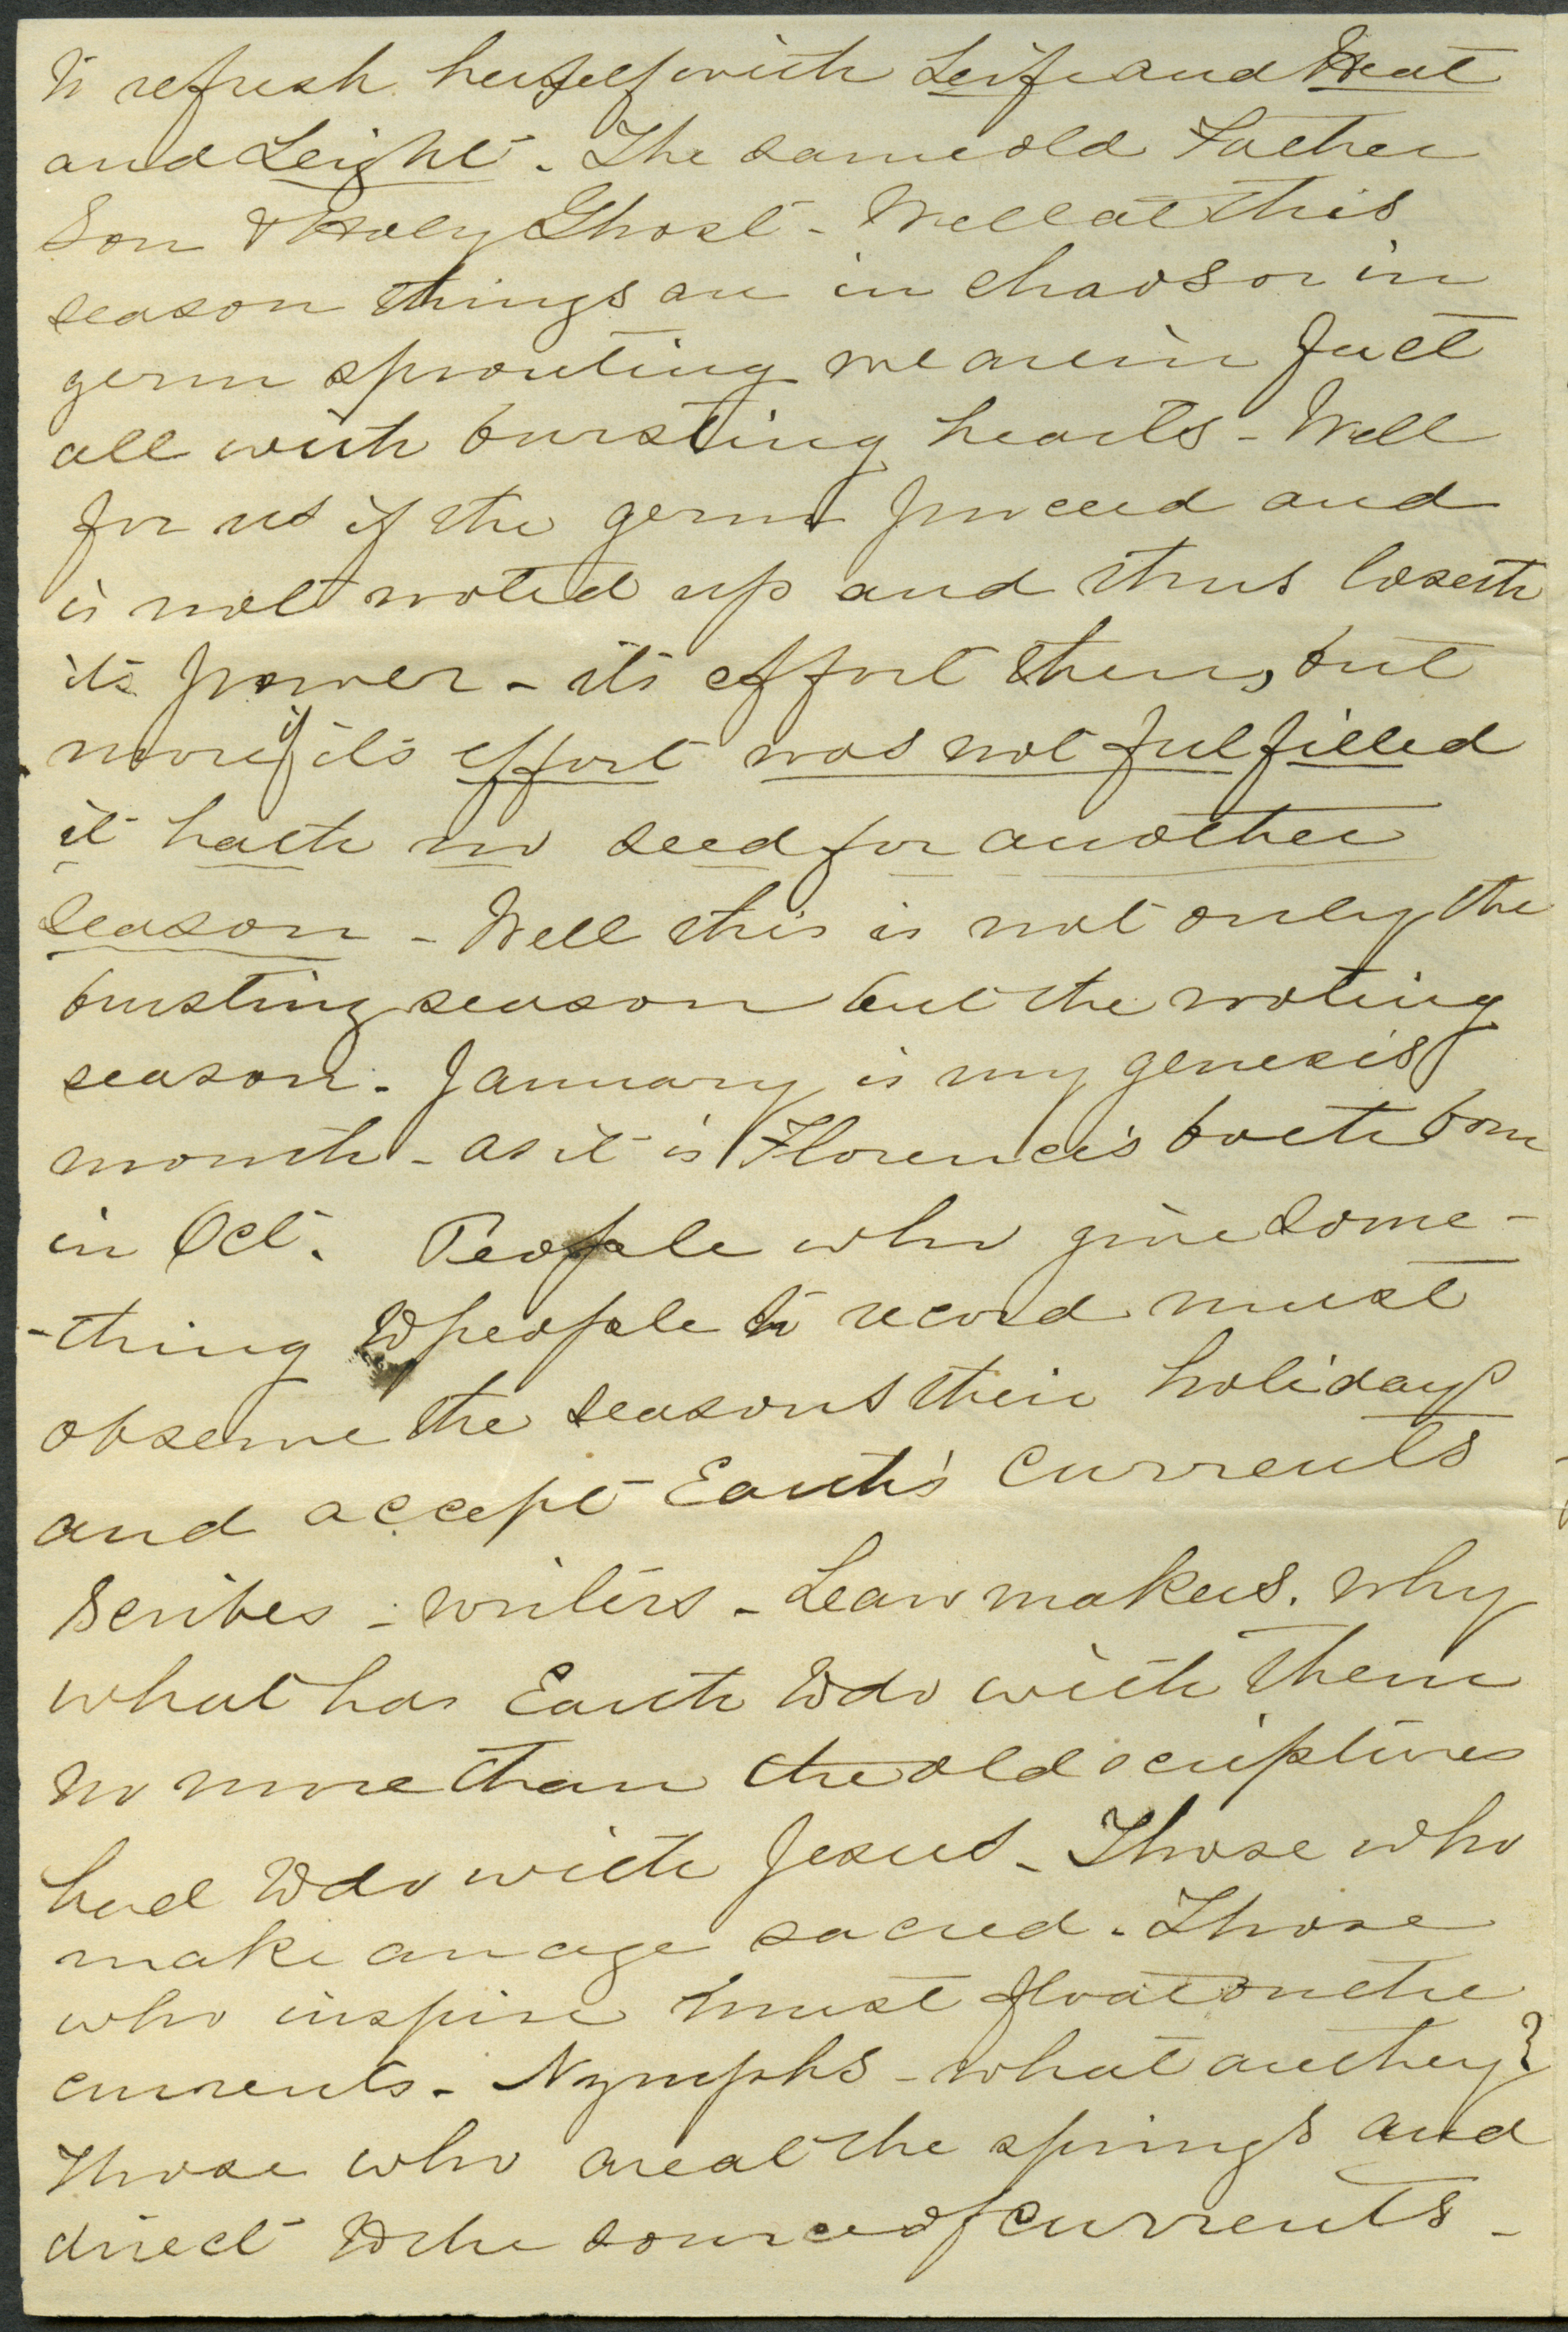 to refresh herself with Leife and Heat
and Leight. The same old Father
Son & Holy Ghost - Well at this
season things are in chaos or in
germ sprouting we are in fact
all with bursting hearts - Well
for us if the germ proceed and
is not rooted up and thus loseth
its power - its effort then, but
more if its effort was not fulfilled
it hath no seed for another
season - Well this is not only the
bursting season but the rooting
season. January is my genesis
month - as it is Florence's both born
in Oct. People who give some-
-thing to people to record must
observe the seasons their holidays
and accept Earth's currents
Scribes - writers - Leaw makers. why
what has Earth to do with them
no more than the old scriptures
had to do with Jesus - Those who
make an age sacred. Those
who inspire must float on the
currents. Nymphs - what are they?
Those who are at the springs and
direct to the source of currents -